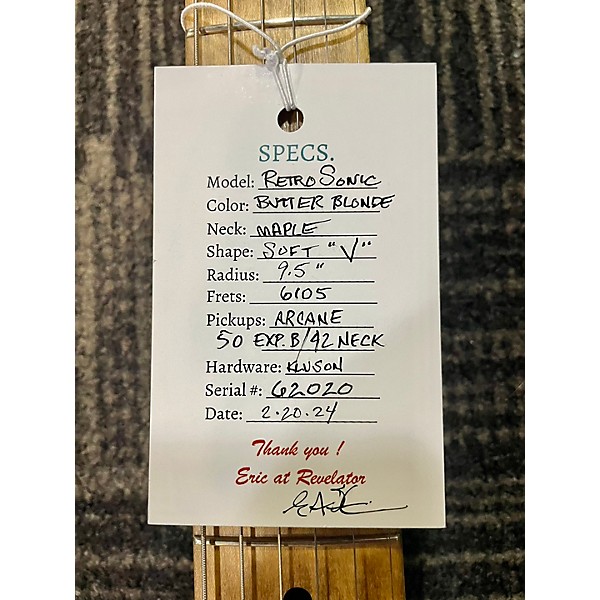 SPECS.
Model: RETROSONIC
Color: BUTTER BLONDE
Neck: MAPLE
Shape: SOFT "V"
Radius: 9.5"
Frets: 6105
Pickups: ARCANE
50 EXP. B/42 NECK
Hardware: KLUSON
Serial #: 62020
Date: 2-20-24
Thank you !
Eric at Revelator